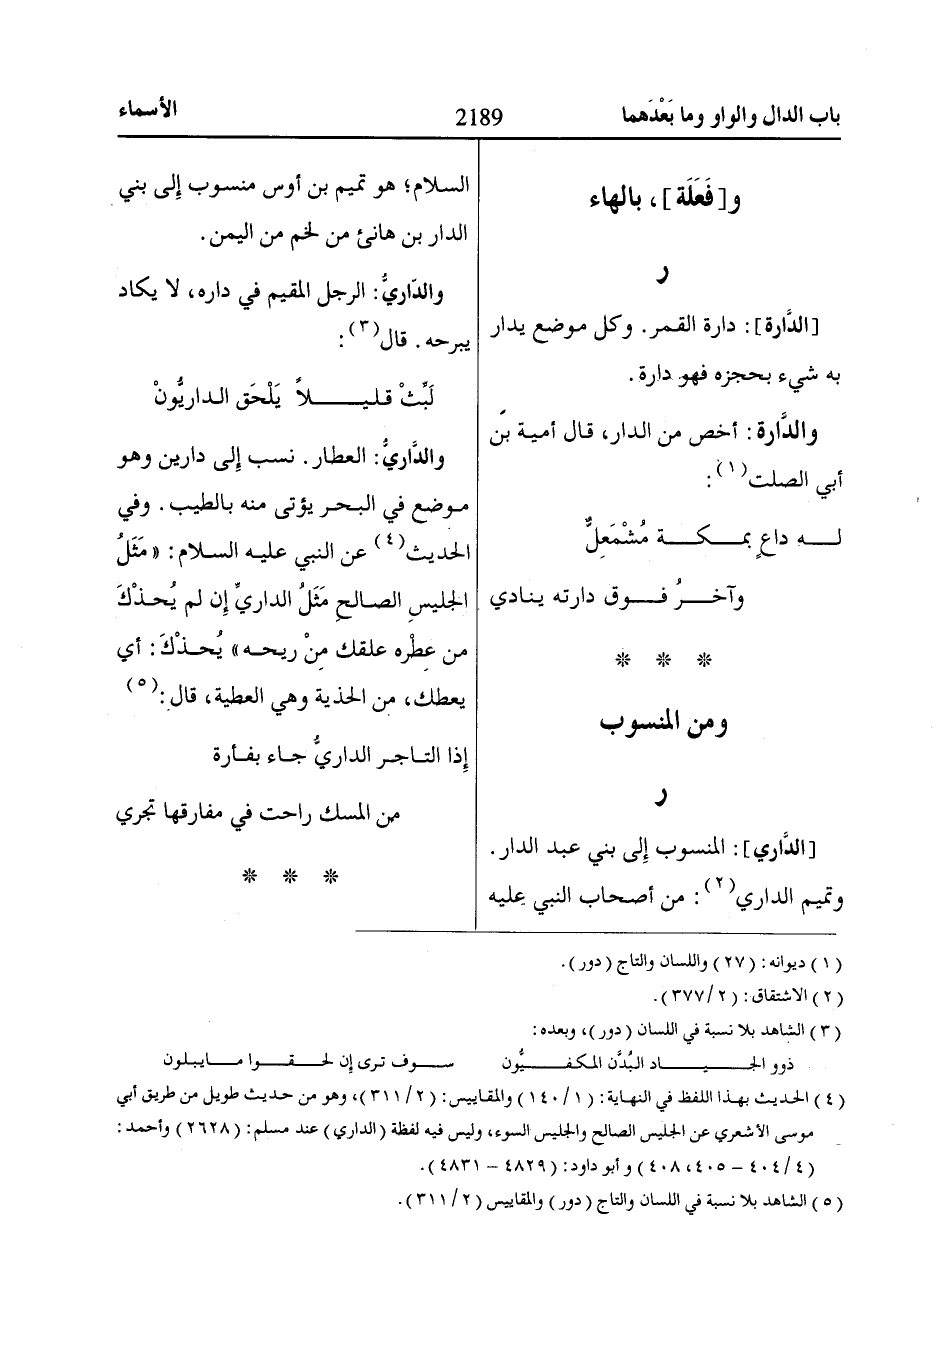 باب الدال والواو وما بَعْدَهما
2189
الأسماء
و[فَعَلَة]، بالهاء
ر
[الدَّارة]: دارة القمر. وكل موضع يدار
به شيء بحجزه فهو دارة.
والدَّارة: أخص من الدار، قال أمية بن
أبي الصلت(١):
لـه داعٍ بمـكـة مُشْمَعِلٌّ
وآخـرُ فـوق دارته ينادي
* * *
ومن المنسوب
ر
[الدَّاري]: المنسوب إلى بني عبد الدار.
وتميم الداري(٢): من أصحاب النبي عليه
السلام؛ هو تميم بن أوس منسوب إلى بني
الدار بن هانئ من لخم من اليمن.
والدّاريُّ: الرجل المقيم في داره، لا يكاد
يبرحه. قال(٣):
لَبِّثْ قليـلاً يَلْحَق الداريُّونْ
والدَّاريُّ: العطار. نسب إلى دارين وهو
موضع في البحر يؤتى منه بالطيب. وفي
الحديث(٤) عن النبي عليه السلام: «مَثَلُ
الجليسِ الصالحِ مَثَلُ الداريِّ إن لم يُحذْكَ
من عِطْره علقك مِنْ ريحه» يُحذْكَ: أي
يعطك، من الحذية وهي العطية، قال:(٥)
إذا التاجر الداريُّ جاء بفأرة
من المسك راحت في مفارقها تجري
* * *
(١) ديوانه: (٢٧) واللسان والتاج (دور).
(٢) الاشتقاق: (٣٧٧/٢).
(٣) الشاهد بلا نسبة في اللسان (دور)، وبعده:
ذوو الجـيـاد البُدَّن المكفـيُّون سـوف ترى إن لحقـوا مـايبلون
(٤) الحديث بهذا اللفظ في النهاية: (١٤٠/١) والمقاييس: (٣١١/٢)، وهو من حديث طويل من طريق أبي
موسى الأشعري عن الجليس الصالح والجليس السوء، وليس فيه لفظة (الداري) عند مسلم: (٢٦٢٨) وأحمد:
(٤٠٤/٤ – ٤٠٥، ٤٠٨) و أبو داود: (٤٨٢٩ – ٤٨٣١).
(٥) الشاهد بلا نسبة في اللسان والتاج (دور) والمقاييس (٣١١/٢).